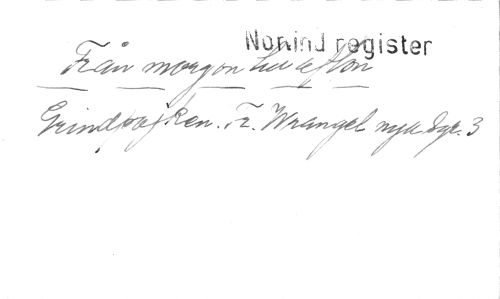 Nomind register
Från morgon till afton
Grindpojken. Fr. Wrangel nya dgr. 3